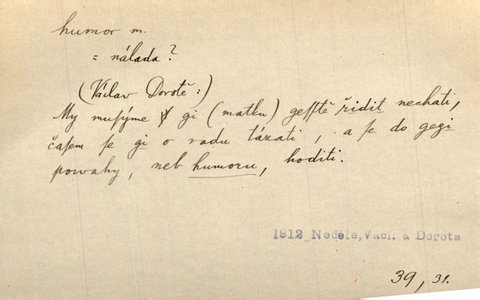 humor m.
= nálada?
(Václav Dorotě:)
My musýme gi (matku) gesstě řidit nechati,
časem se gi o radu tázati, a se do gegi
powahy, neb humoru, hoditi.
1812 Neděle, Václ. a Dorota
39, 31.